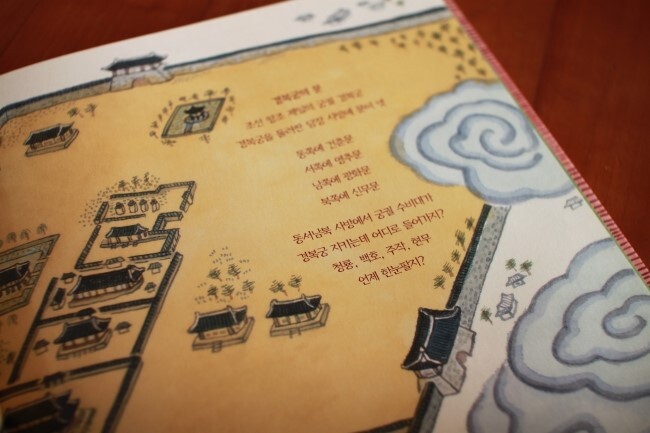 경복궁의 문
조선 왕조 제일의 궁궐 경복궁
경복궁을 둘러싼 담장 사방에 문이 넷
동쪽에 건춘문
서쪽에 영추문
남쪽에 광화문
북쪽에 신무문
동서남북 사방에서 궁궐 수비대가
경복궁 지키는데 어디로 들어가지?
청룡, 백호, 주작, 현무
언제 한눈팔지?